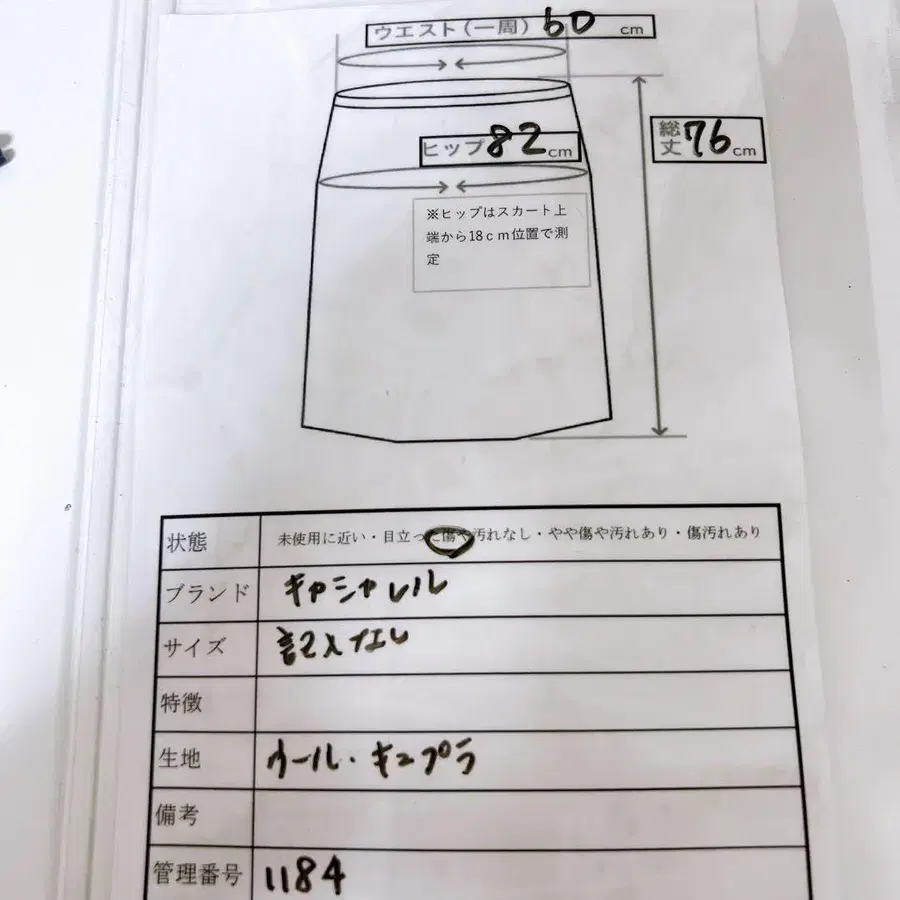 ウエスト(一周) 60 cm
ヒップ 82 cm
総丈 76 cm
※ヒップはスカート上
端から18cm位置で測
定
状態 未使用に近い・目立った傷や汚れなし・やや傷や汚れあり・傷汚れあり
ブランド キャシャレル
サイズ 記入なし
特徴
生地 ウール・キュプラ
備考
管理番号 1184